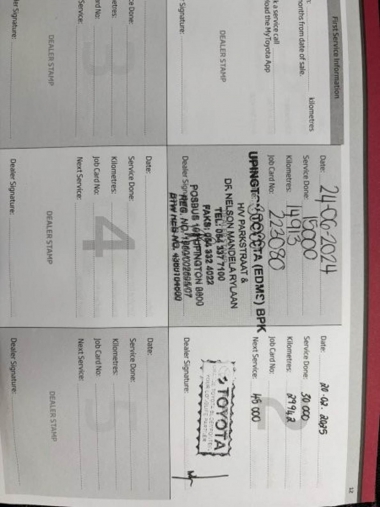 First Service Information
kilometres
months from date of sale.
k a service call
load the MyToyota App
DEALER STAMP
Signature:
Date: 24-06-2024
Service Done: 15000
Kilometres: 14913
Job Card No: 223080
UPINGTON TOYOTA (EDMS) BPK
H/V PARKSTRAAT &
DR. NELSON MANDELA RYLAAN
TEL: 054 337 7100
FAKS: 054 332 4022
POSBUS UPINGTON 8800
Dealer Signature:
Date: 20-02-2025
Service Done: 30 000
Kilometres: 29942
Job Card No:
Next Service: 45 000
TOYOTA
Dealer Signature:
ce Done:
metres:
Card No:
Service:
DEALER STAMP
er Signature:
4
Date:
Service Done:
Kilometres:
Job Card No:
Next Service:
DEALER STAMP
Dealer Signature:
Date:
Service Done:
Kilometres:
Job Card No:
Next Service:
DEALER STAMP
Dealer Signature:
12